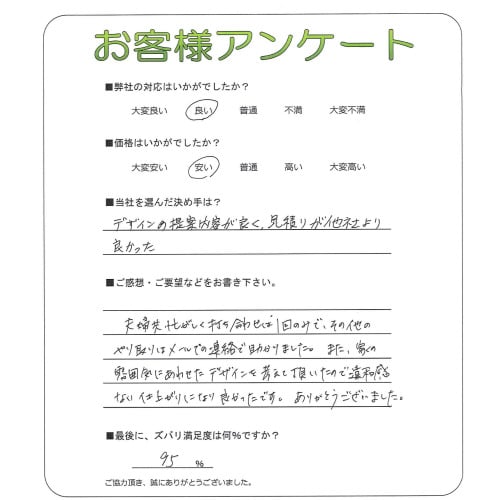 お客様アンケート
■弊社の対応はいかがでしたか？
大変良い 良い 普通 不満 大変不満
■価格はいかがでしたか？
大変安い 安い 普通 高い 大変高い
■当社を選んだ決め手は？
デザインの提案内容が良く、見積りが他社より
良かった
■ご感想・ご要望などをお書き下さい。
夫婦共忙がしく打ち合わせは1回のみで、その他の
やり取りはメールでの連絡で助かりました。また、家の
雰囲気にあわせたデザインを考えて頂いたので違和感
ない仕上がりになり良かったです。ありがとうございました。
■最後に、ズバリ満足度は何%ですか？
95 %
ご協力頂き、誠にありがとうございました。